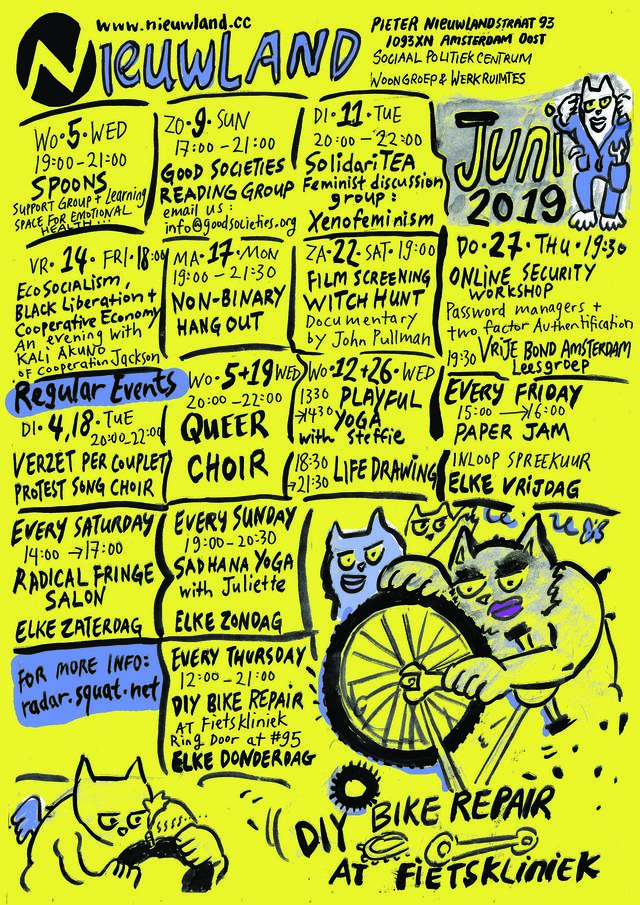 www.nieuwland.cc
NIEUWLAND
PIETER NIEUWLANDSTRAAT 93
1093XN AMSTERDAM OOST
SOCIAAL POLITIEK CENTRUM
WOONGROEP & WERKRUIMTES
JUNI
2019
WO·5·WED
19:00-21:00
SPOONS
SUPPORT GROUP + Learning
SPACE FOR EMOTIONAL
HEALTH...
ZO·9·SUN
17:00-21:00
GOOD SOCIETIES
READING GROUP
email us:
info@goodsocieties.org
DI·11·TUE
20:00-22:00
SolidariTEA
Feminist discussion
group:
Xenofeminism
VR·14·FRI·18:00
ECOSOCIALISM,
BLACK Liberation +
Cooperative Economy
An evening with
KALI AKUNO
of COOPERATION Jackson
MA·17·MON
19:00-21:30
NON-BINARY
HANG OUT
ZA·22·SAT·19:00
FILM SCREENING
WITCH HUNT
Documentary
by John Pullman
DO·27·THU·19:30
ONLINE SECURITY
WORKSHOP
Password managers +
two factor Authentification
19:30 VRIJE BOND AMSTERDAM
Leesgroep
Regular Events
DI·4,18·TUE
20:00-22:00
VERZET PER COUPLET
PROTEST SONG CHOIR
WO·5+19 WED
20:00-22:00
QUEER
CHOIR
WO·12+26·WED
1330
→1430
PLAYFUL
YOGA
with Steffie
18:30
→21:30
LIFE DRAWING
EVERY FRIDAY
15:00→16:00
PAPER JAM
INLOOP SPREEKUUR
ELKE VRIJDAG
EVERY SATURDAY
14:00→17:00
RADICAL FRINGE
SALON
ELKE ZATERDAG
EVERY SUNDAY
19:00-20:30
SADHANA YOGA
with Juliette
ELKE ZONDAG
FOR MORE INFO:
radar.squat.net
EVERY THURSDAY
12:00-21:00
DIY BIKE REPAIR
AT Fietskliniek
Ring Door at #95
ELKE DONDERDAG
DIY BIKE REPAIR
AT FIETSKLINIEK